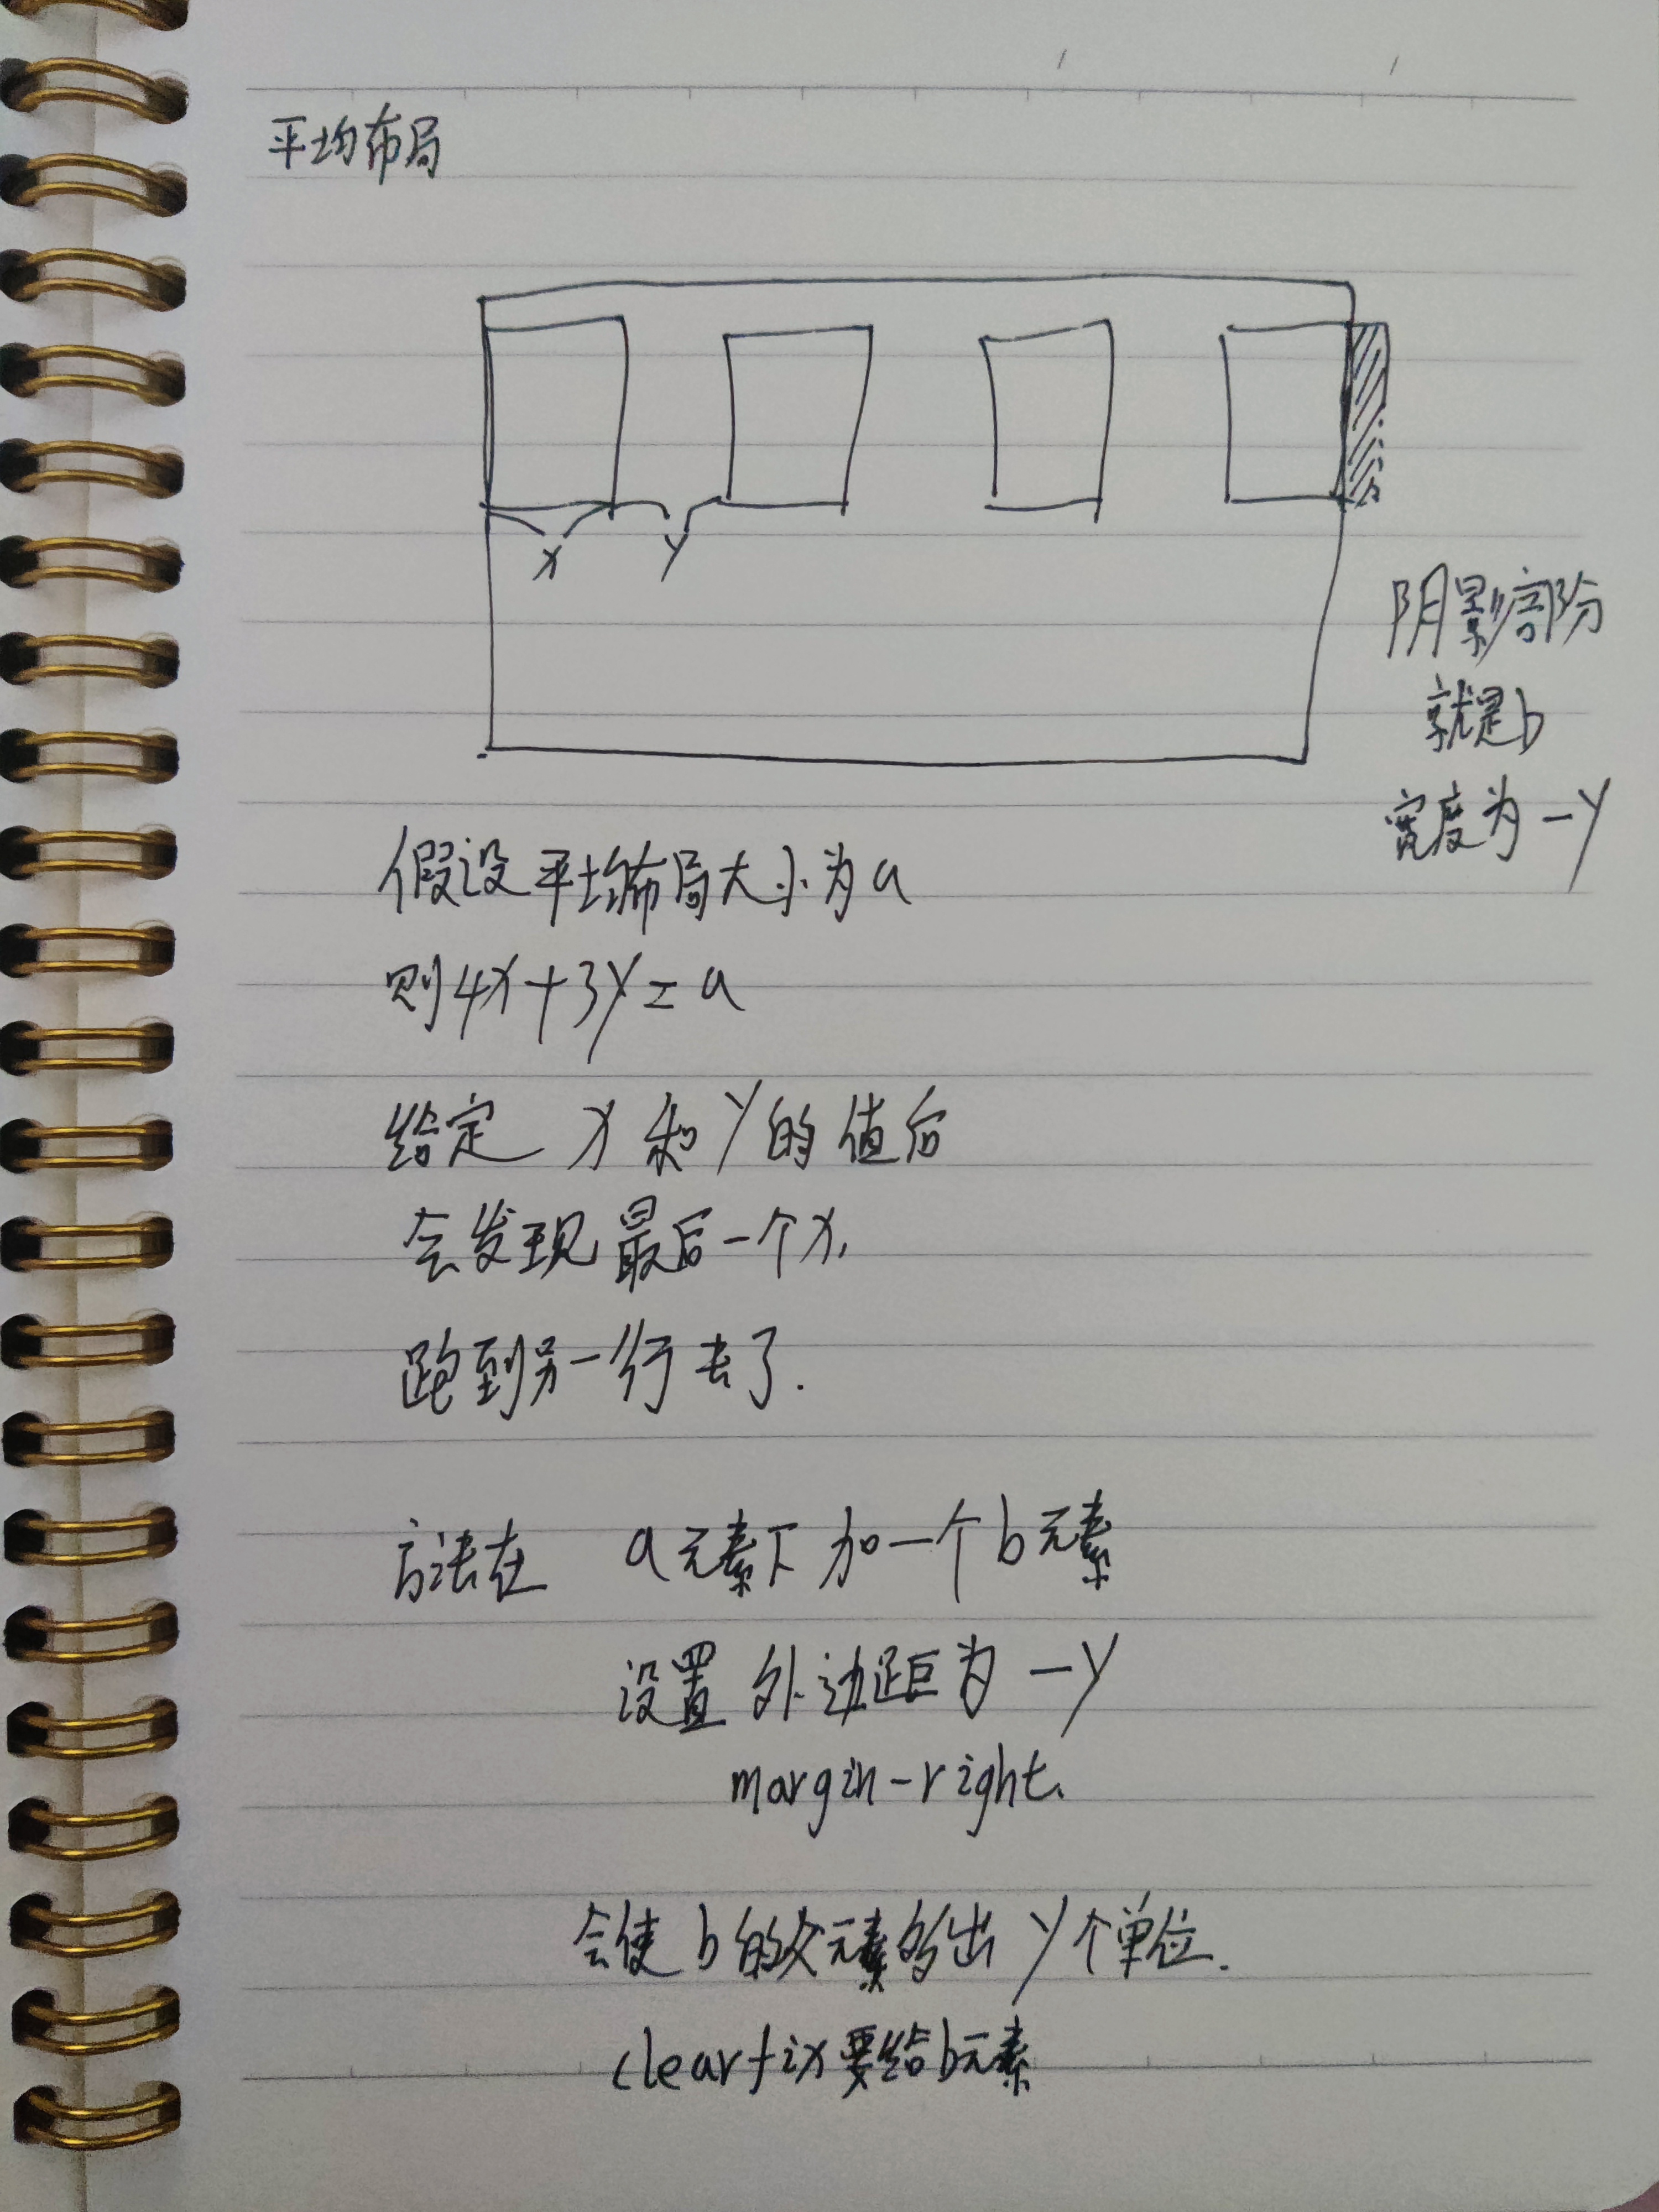 平均布局
x
y
阴影部分
就是b
宽度为-y
假设平均布局大小为a
则4x+3y=a
给定 x 和 y 的值后
会发现最后一个x,
跑到另一行去了.
方法在 a元素下加一个b元素
设置外边距为 -y
margin-right.
会使b的父元素多出 y个单位.
clearfix要给b元素